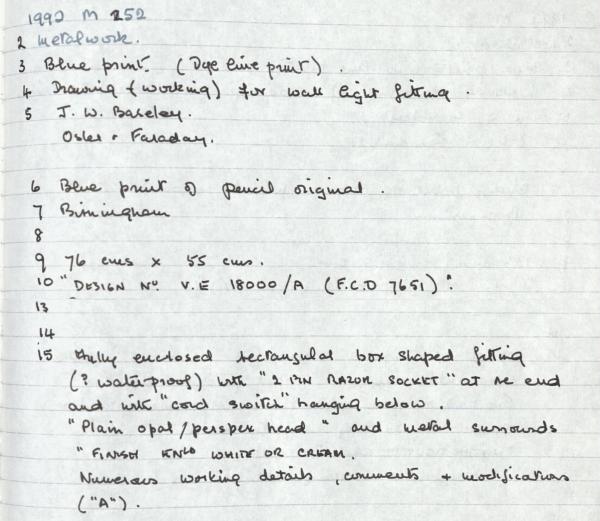 1992 M 252
2 Metalwork.
3 Blue print. (Dye line print).
4 Drawing (working) for wall light fitting.
5 J. W. Baseley.
Osler + Faraday.
6 Blue print of pencil original.
7 Birmingham
8
9 76 cms x 55 cms.
10 "DESIGN No. V.E 18000/A (F.C.D 7651)".
13
14
15 Fully enclosed rectangular box shaped fitting
(? waterproof) with "2 PIN RAZOR SOCKET" at one end
and with "cord switch" hanging below.
"Plain opal/perspex head" and metal surrounds
"FINISH WHITE OR CREAM.
Numerous working details, comments + modifications
("A").